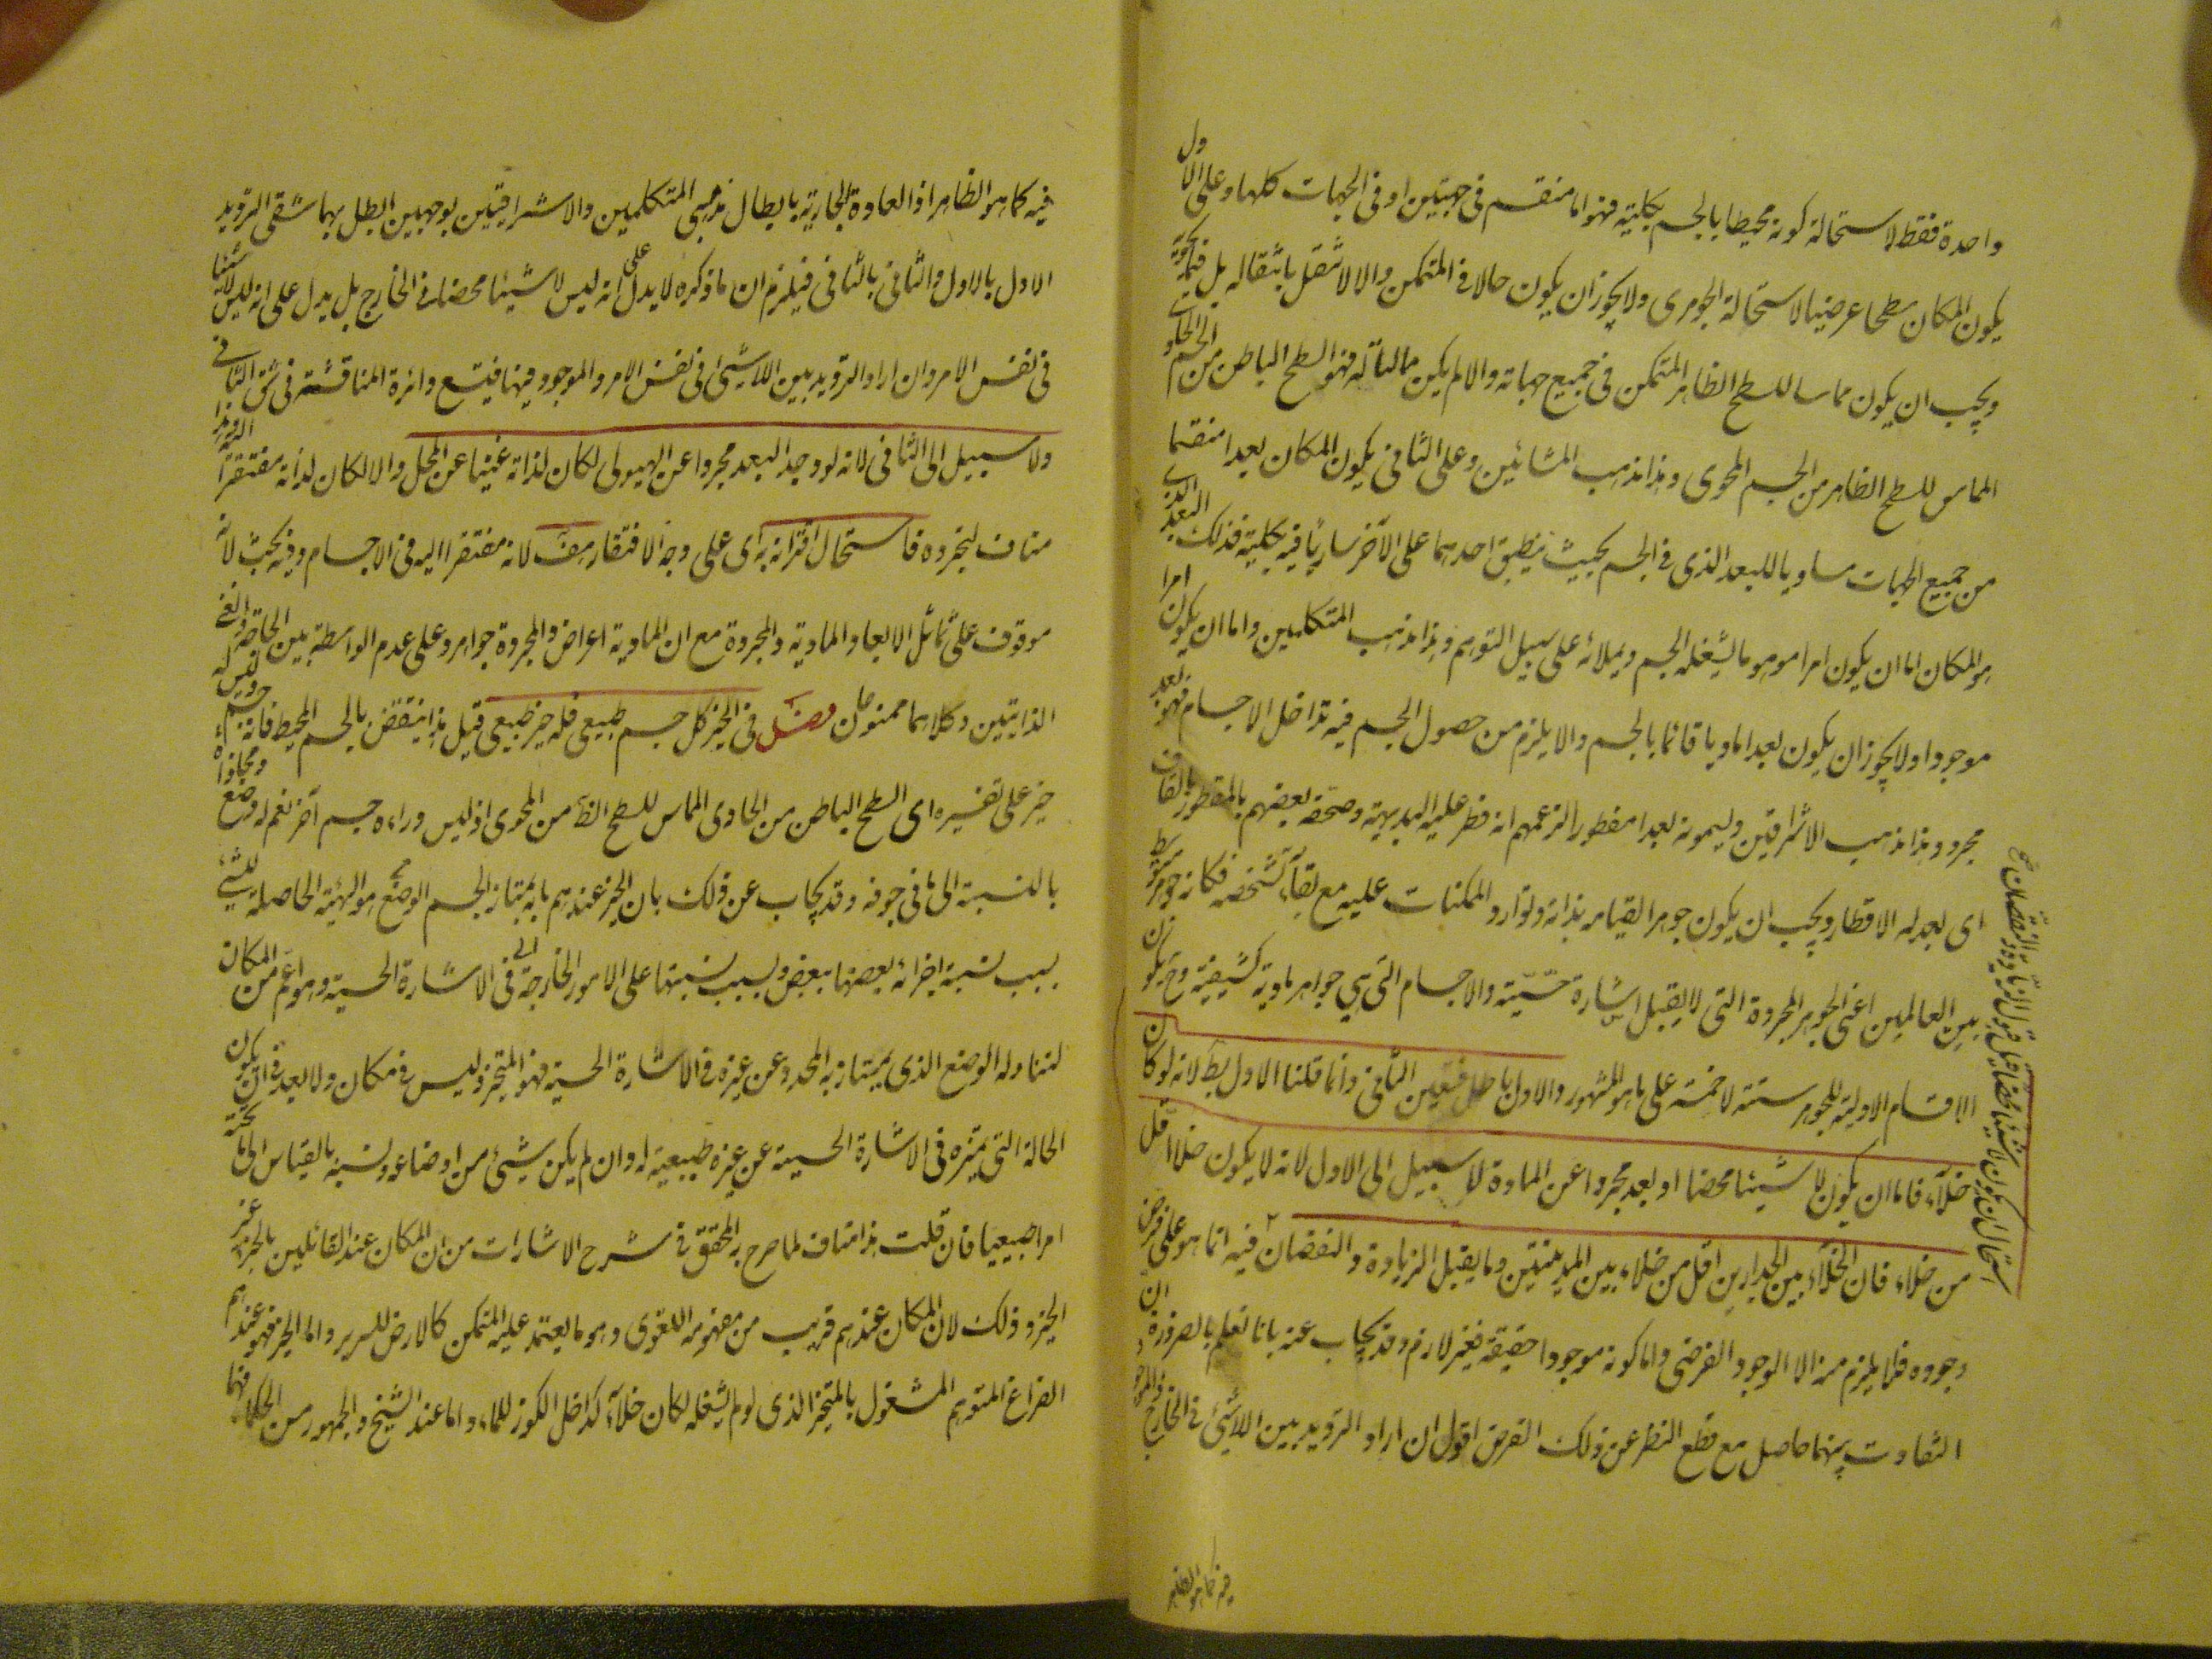 واحدة فقط لاستحالة كونه محيطا بالجسم بكليته فهو اما منقسم فى جهتين او فى الجهات كلها وعلى الاول
يكون المكان سطحا عرضيا لاستحالة الجوهرى ولا يجوز ان يكون حالا فى المتمكن والا لانتقل بانتقاله بل فيما يحويه
ويجب ان يكون مماسا للسطح الظاهر المتمكن فى جميع جهاته والا لم يكن مالئا له فهو السطح الباطن من الجسم الحاوى
المماس للسطح الظاهر من الجسم المحوى وهذا مذهب المشائين وعلى الثانى يكون المكان بعدا منقسما
من جميع الجهات مساويا للبعد الذى فى الجسم بحيث ينطبق احدهما على الآخر ساريا فيه بكليته فذلك البعد الذى
هو المكان اما ان يكون امرا موهوما يشغله الجسم ويملائه على سبيل التوهم وهذا مذهب المتكلمين واما ان يكون امرا
موجودا ولا يجوز ان يكون بعدا ماديا قائما بالجسم والا يلزم من حصول الجسم فيه تداخل الاجسام فهو بعد
مجرد وهذا مذهب الاشراقيين ويسمونه بعدا مفطورا لزعمهم انه فطر عليه البديهة وصحفه بعضهم بالمقطور بالقاف
اى بعد له الاقطار ويجب ان يكون جوهرا لقيامه بذاته وتوارد الممكنات عليه مع بقاء تشخصه فكانه جوهر متوسط
بين العالمين اعنى الجوهر المجردة التى لا يقبل اشارة حسّيّة والاجسام التى هى جواهر مادية كثيفية وح يكون
الاقسام الاولية للجوهر ستة لا خمسة على ما هو المشهور والاول باطل فتعين الثانى وانما قلنا الاول بط لانه لو كان
خلآء فاما ان يكون لا شيئا محضا او بعد مجردا عن المادة لا سبيل الى الاول لانه لا يكون خلا اقل
من خلاء فان الخلآء بين الجدارين اقل من خلاء بين المدينتين وما يقبل الزيادة والنقصان فيه انما هو على فرض
وجوده فلا يلزم منه الا الوجود الفرضى واما كونه موجودا حقيقة فغير لازم وقد يجاب عنه بانا نعلم بالضرورة ان
التفاوت بينهما حاصل مع قطع النظر عن ذلك الفرض اقول ان اراد الترديد بين اللاشئ فى الخارج والموجود
استحال ان يكون لا شيئا محضا قبل قبول الزيادة والنقصان صح
فيه كما هو الظاهر
فيه كما هو الظاهر اذ العادة الجارية بابطال مذهبى المتكلمين والاشراقيين بوجهين ابطل بهما شقى الترديد
الاول بالاول والثانى بالثانى فيلزم ان ما ذكره لا يدل على انه ليس لا شيئا محضا فى الخارج بل يدل على انه ليس لا شيئا
فى نفس الامر وان اراد الترديد بين اللاشئ فى نفس الامر والموجود فيها فيتسع دائرة المناقشة فى شق الثانى
ولا سبيل الى الثانى لانه لو وجد البعد مجردا عن الهيولى لكان لذاته غنيا عن المحل والا لكان لذاته مفتقرا اليه وهذا
مناف لتجرده فاستحال اقترانه به اى على وجه الافتقار هف لانه مفتقرا اليه فى الاجسام وفيه بحث لانه
موقوف على تماثل الابعاد المادية والمجردة مع ان المادية اعراض والمجردة جواهر وعلى عدم الواسطة بين الحاجة والغنى
الذاتيين وكلاهما ممنوعان فصل فى الحيز كل جسم طبيعى فله حيز طبيعى قيل هذا ينتقض بالجسم المحيط فانه جسم وليس له
حيز على تفسيره اى السطح الباطن من الحاوى المماس للسطح الظا من المحوى اذ ليس وراءه جسم آخر نعم له وضع ومحاذاة
بالنسبة الى ما فى جوفه وقد يجاب عن ذلك بان الحيز عندهم ما به يمتاز الجسم الوضع هو الهيئة الحاصلة للشئ
بسبب نسبة اجزائه بعضها ببعض وبسبب نسبتها على الامور الخارجة الى فى الاشارة الحسية وهو اعم من المكان
لتناوله الوضع الذى يمتاز به المحدد عن غيره فى الاشارة الحسية فهو المتحيز وليس فى مكان ولا بعد فى ان يكون
الحالة التى تميزه فى الاشارة الحسية عن غيره طبيعية له وان لم يكن شئ من اوضاعه ونسبه بالقياس الى ما تحته
امرا طبيعيا فان قلت هذا مناف لما صرح به المحقق فى شرح الاشارات من ان المكان عند القائلين بالجزء غير
الحيز وذلك لان المكان عندهم قريب من مفهومه اللغوى وهو ما يعتمد عليه المتمكن كالارض للسرير واما الحيز فهو عندهم
الفراغ المتوهم المشغول بالمتحيز الذى لو لم يشغله لكان خلآء كداخل الكوز للماء واما عند الشيخ والجمهور من الحكماء فهما